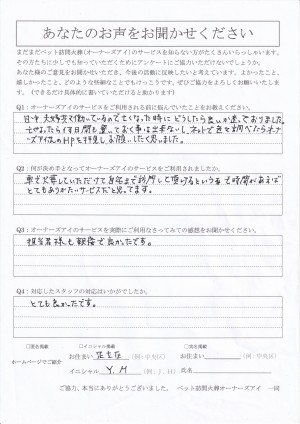 あなたのお声をお聞かせください
まだまだペット訪問火葬(オーナーズアイ)のサービスを知らない方がたくさんいらっしゃいます。
その方たちに少しでも知っていただくためにアンケートにご協力いただけないでしょうか。
あなた様のご意見をお聞かせいただき、今後の活動に反映したいと考えています。よかったこと、
嬉しかったこと、どのような些細なことでもけっこうです。ぜひご協力をよろしくお願いいたします!
(できるだけ具体的にご記入していただけると助かります)
Q1:オーナーズアイのサービスをご利用される前に悩んでいたことをお教えください。
日中夫婦共働いているので亡くなった時にどうしたら良いか迷っておりました。
ズアイ様のHPを拝見しお願いしたく思いました。
Q2:何が決め手となってオーナーズアイのサービスをご利用されましたか。
車で来ていただけて自宅まで訪問して頂けるという事で時間があえば
とてもありがたいサービスだと思ってます。
Q3:オーナーズアイのサービスを実際にご利用なさってみての感想をお聞かせください。
担当者様も親切で良かたです。
Q4:対応したスタッフの対応はいかがでしたか。
とても良かたです。
□匿名掲載 □イニシャル掲載 □実名掲載
ホームページでご紹介 お住まい 足立区 (例:中央区) お住まい (例:中央区)
イニシャル Y.M (例:J.H) 氏名
ご協力、本当にありがとうございました。 ペット訪問火葬オーナーズアイ 一同